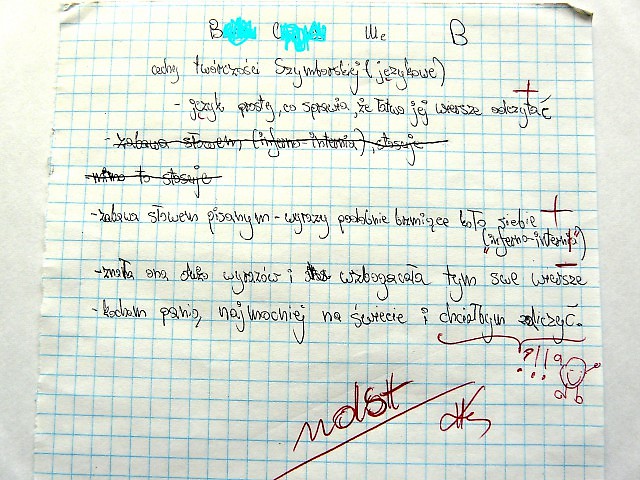 B C IIIe B
cechy twórczości Szymborskiej (językowe)
- język prosty, co sprawia, że łatwo jej wiersze odczytać +
- zabawa słowem, (inferno-internia), stosuje
mimo to stosuje
- zabawa słowem pisanym - wyrazy podobnie brzmiące koło siebie +
("inferno-internia")
- znała ona dużo wyrazów i wzbogacała tym swe wiersze -
- kocham panią najmocniej na świecie i chciałbym zaliczyć.
?!!
ndst